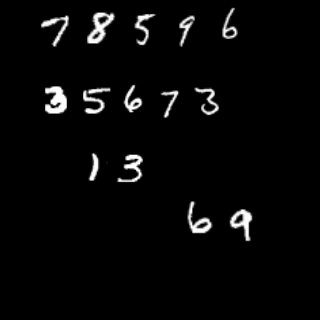 7 8 5 9 6
3 5 6 7 3
1 3
6 9